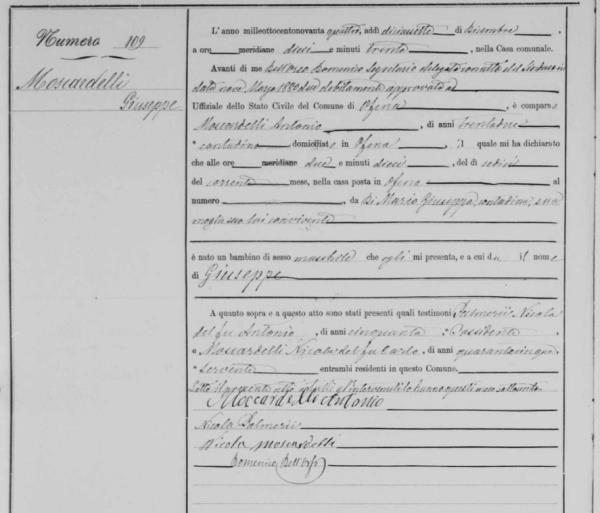 Numero 109
Moscardelli
Giuseppe
L'anno milleottocentonovanta quattro, addì diciassette di Dicembre,
a ore meridiane dieci e minuti trenta, nella Casa comunale.
Avanti di me Domenico Segretario delegato con atto del
data nove Marzo debitamente approvato
Uffiziale dello Stato Civile del Comune di Ofena, è comparso
Moscardelli Antonio, di anni trentadue
contadino domiciliato in Ofena, il quale mi ha dichiarato
che alle ore meridiane dieci e minuti dieci, del dì sedici
del corrente mese, nella casa posta in Ofena al
numero, da Di Mario Giuseppa, contadina, sua
moglie seco lui convivente
è nato un bambino di sesso maschile che egli mi presenta, e a cui dà il nome
di Giuseppe
A quanto sopra e a questo atto sono stati presenti quali testimoni Palmerii Nicola
del fu Antonio, di anni cinquanta, Possidente
e Moscardelli Nicola del fu Carlo, di anni quarantacinque
servente entrambi residenti in questo Comune.
Letto il presente atto agl'intervenuti lo hanno questi meco sottoscritto
Moscardelli Antonio
Nicola Palmerii
Nicola Moscardelli
Domenico